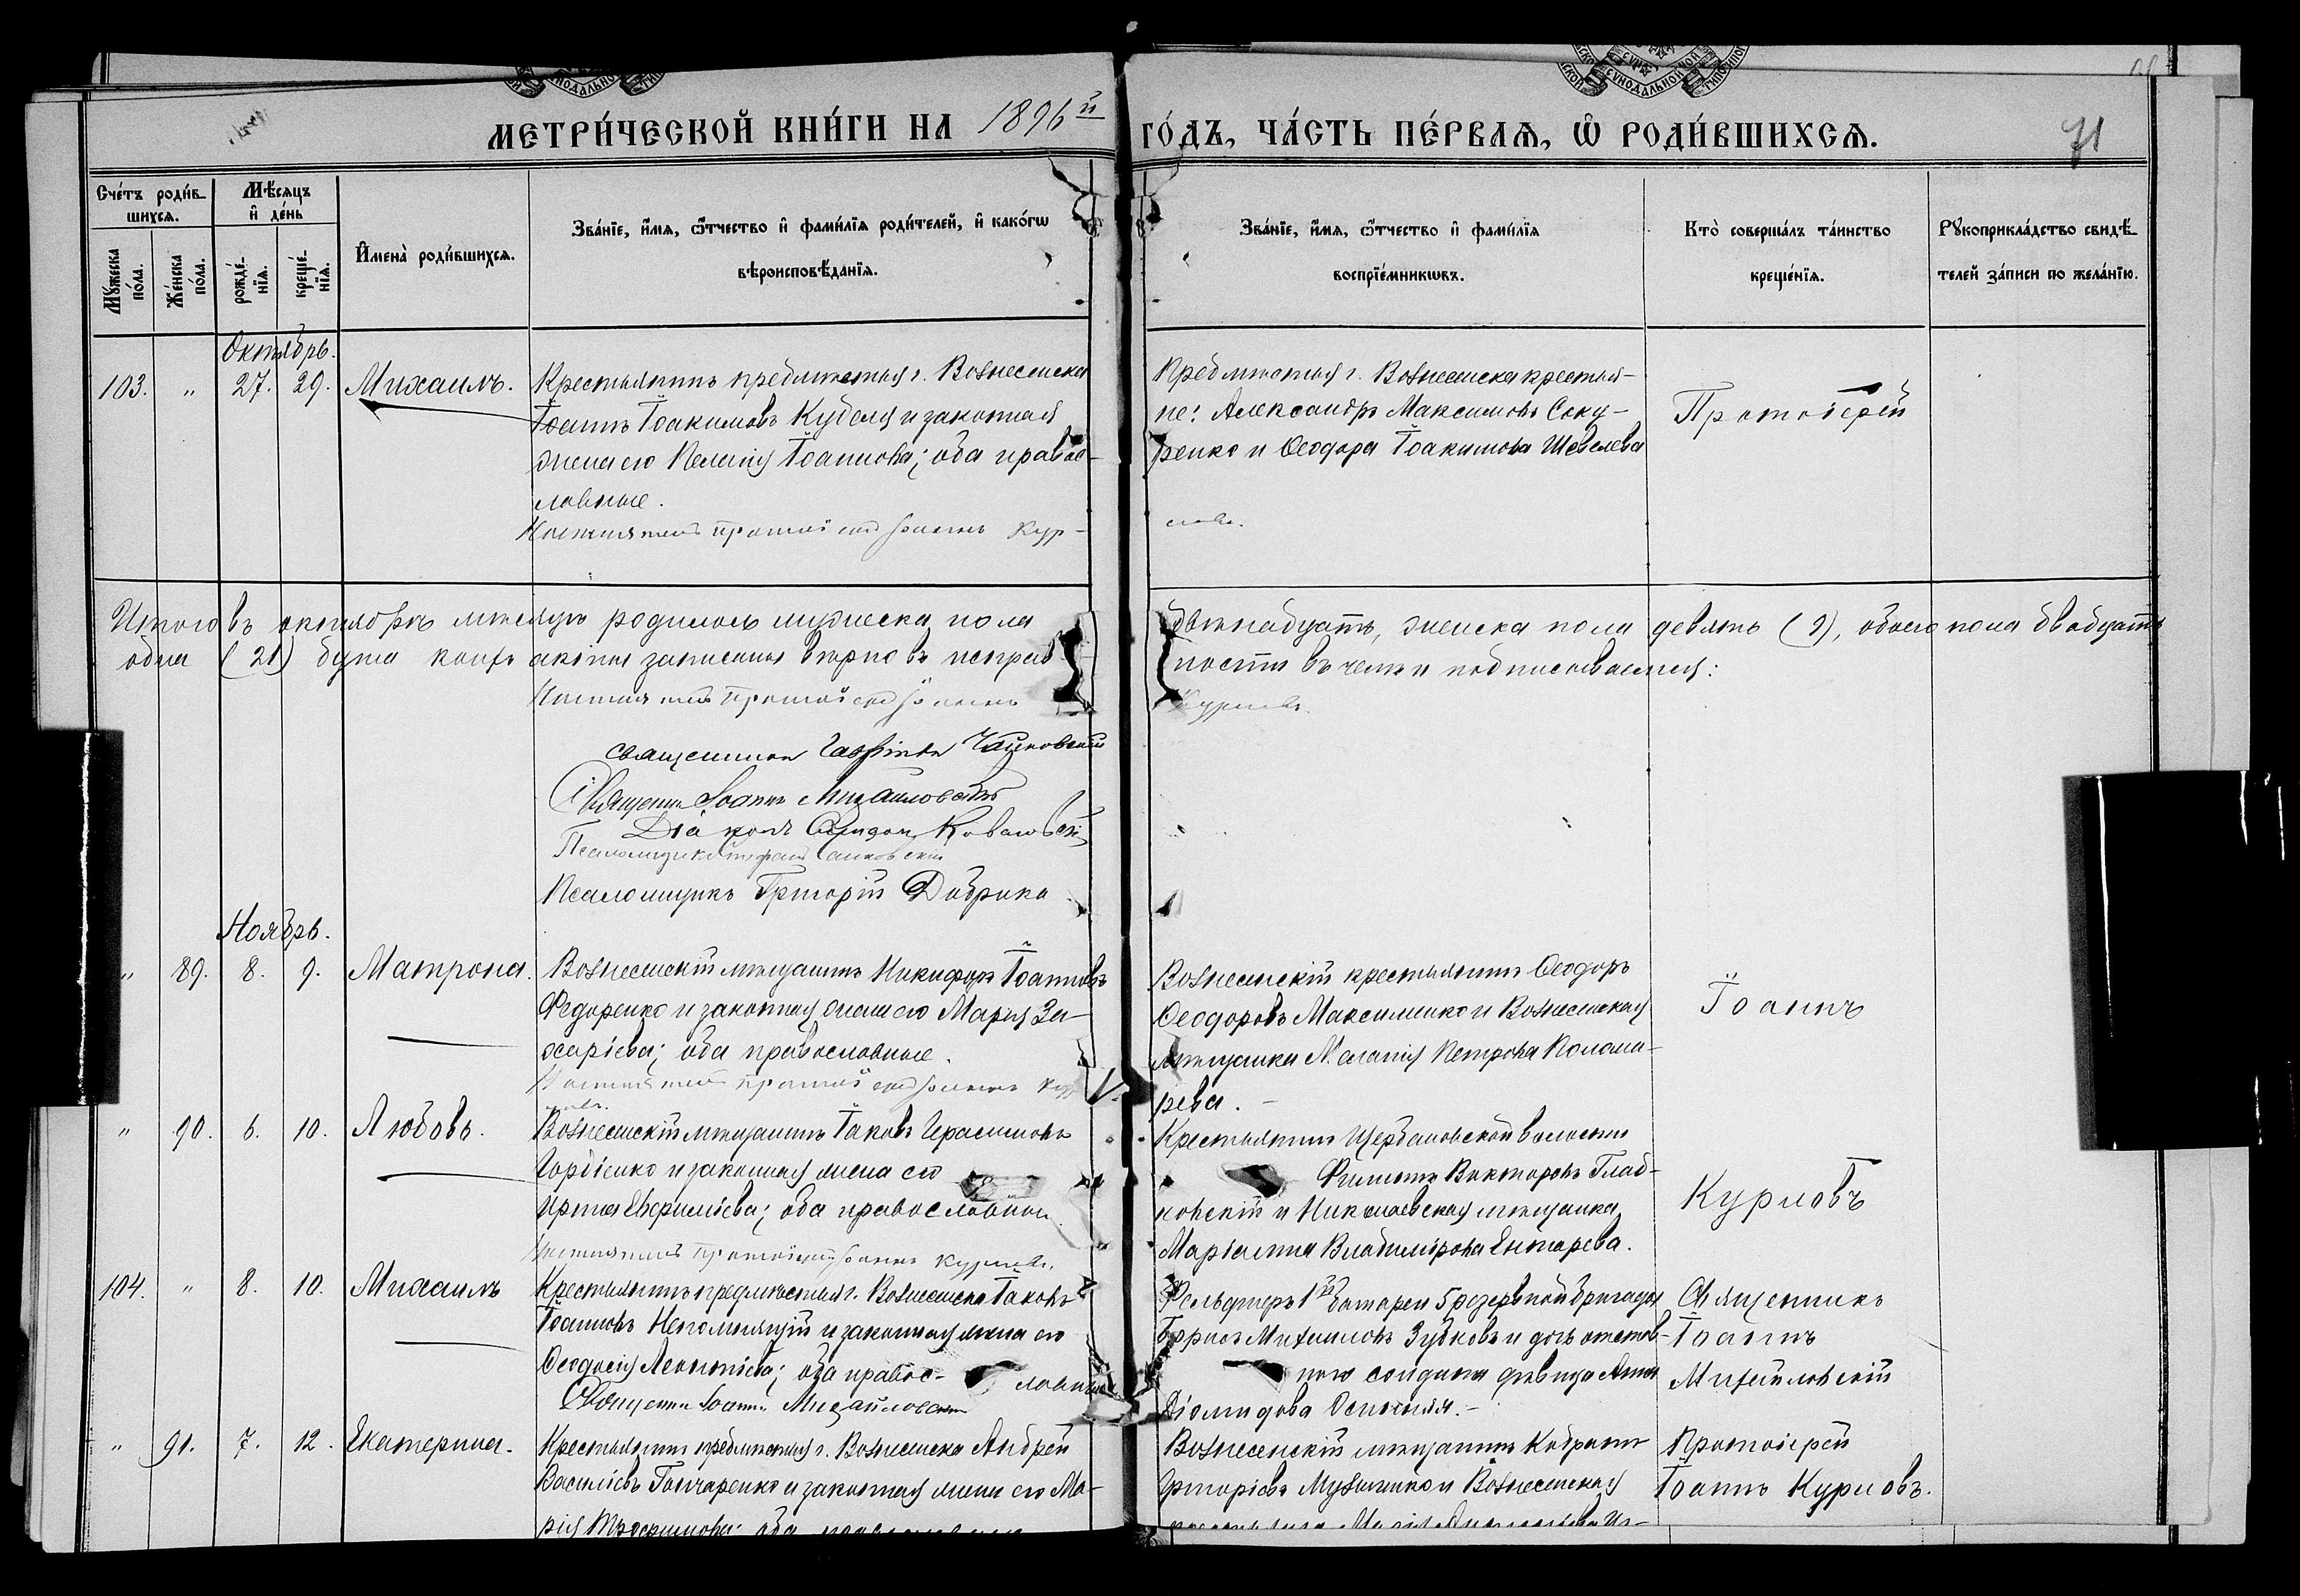 МЕТРИ́ЧЕСКОЙ КНИ́ГИ НА 1896й ГО́ДЪ, ЧА́СТЬ ПЕ́РВАѦ, Ѡ҆ РОДИ́ВШИХСѦ.
71
Сче́тъ роди́вшихсѧ.
Мꙋ́жеска по́ла.
Же́нска по́ла.
Мѣ́сѧцъ и҆ де́нь
рожде́нїѧ.
креще́нїѧ.
И҆мена̀ роди́вшихсѧ.
Зва́нїе, и҆́мѧ, ѻ҆́тчество и҆ фами́лїѧ роди́телей, и҆ како́гѡ
вѣроисповѣ́данїѧ.
Зва́нїе, и҆́мѧ, ѻ҆́тчество и҆ фами́лїѧ
воспрїе́мникѡвъ.
Кто̀ соверша́лъ та́инство
креще́нїѧ.
Рꙋкоприкла́дство свидѣ́телей за́писи по жела́нїю.
Октябрь.
103. „ 27. 29. Михаилъ.
Крестьянинъ предмѣстья г. Вознесенска
Іоаннъ Іоакимовъ Кубеля и законная
жена его Пелагія Іоаннова; оба правос-
лавные.
Настоятель протоіерей Іоаннъ Кур-
Предмѣстья г. Вознесенска крестья-
не: Александръ Максимовъ Соку-
ренко и Ѳеодора Іоакимова Шевелева
ловъ.
Протоіерей
Итого въ октябрѣ мѣсяцѣ родилось мужеска пола двѣнадцать, женска пола девять (9), обоего пола двадцать
одна (21) душа коихъ акты записаны вѣрно въ исправности въ чемъ и подписываемся:
Настоятель протоіерей Іоаннъ Курловъ.
Священникъ Чайковскій
Священникъ Іоаннъ Михайловскій
Діаконъ Спиридонъ Ковальскій
Псаломщикъ
Псаломщикъ Григорій Добрика
Ноябрь.
„ 89. 8. 9. Матрона.
Вознесенскій мѣщанинъ Никифоръ Іоанновъ
Федоренко и законная жена его Марія За-
харіева; оба православные.
Настоятель протоіерей Іоаннъ Кур-
ловъ.
Вознесенскій крестьянинъ Ѳеодоръ
Ѳеодоровъ Максименко и Вознесенская
мѣщанка Меланія Петрова Понома-
рева.
Іоаннъ
„ 90. 6. 10. Любовь.
Вознесенскій мѣщанинъ Іаковъ Герасимовъ
Гордіенко и законная жена его
Ирина; оба православные.
Настоятель протоіерей Іоаннъ Курловъ.
Крестьянинъ Щербановской волости
Филиппъ Викторовъ Глад-
ковскій и Николаевская мѣщанка
Маріамна Владимірова Ентарева.
Курловъ
104. „ 8. 10. Михаилъ
Крестьянинъ предмѣстья г. Вознесенска Іаковъ
Іоанновъ Непомнящій и законная жена его
Ѳеодосія Леонтіева; оба правос-
лавные
Священникъ Іоаннъ Михайловскій
Фельдшеръ 1й батареи 5 резервной бригады
Борисъ Михаиловъ Зубковъ и дочь отстав-
ного солдата дѣвица Анна
Діомидова
Священникъ
Іоаннъ
Михайловскій
„ 91. 7. 12. Екатерина.
Крестьянинъ предмѣстья г. Вознесенска Андрей
Василіевъ Гончаренко и законная жена его Ма-
рія
Вознесенскій мѣщанинъ Кодратъ
Григоріевъ Музыченко и Вознесенская
Протоіерей
Іоаннъ Курловъ.